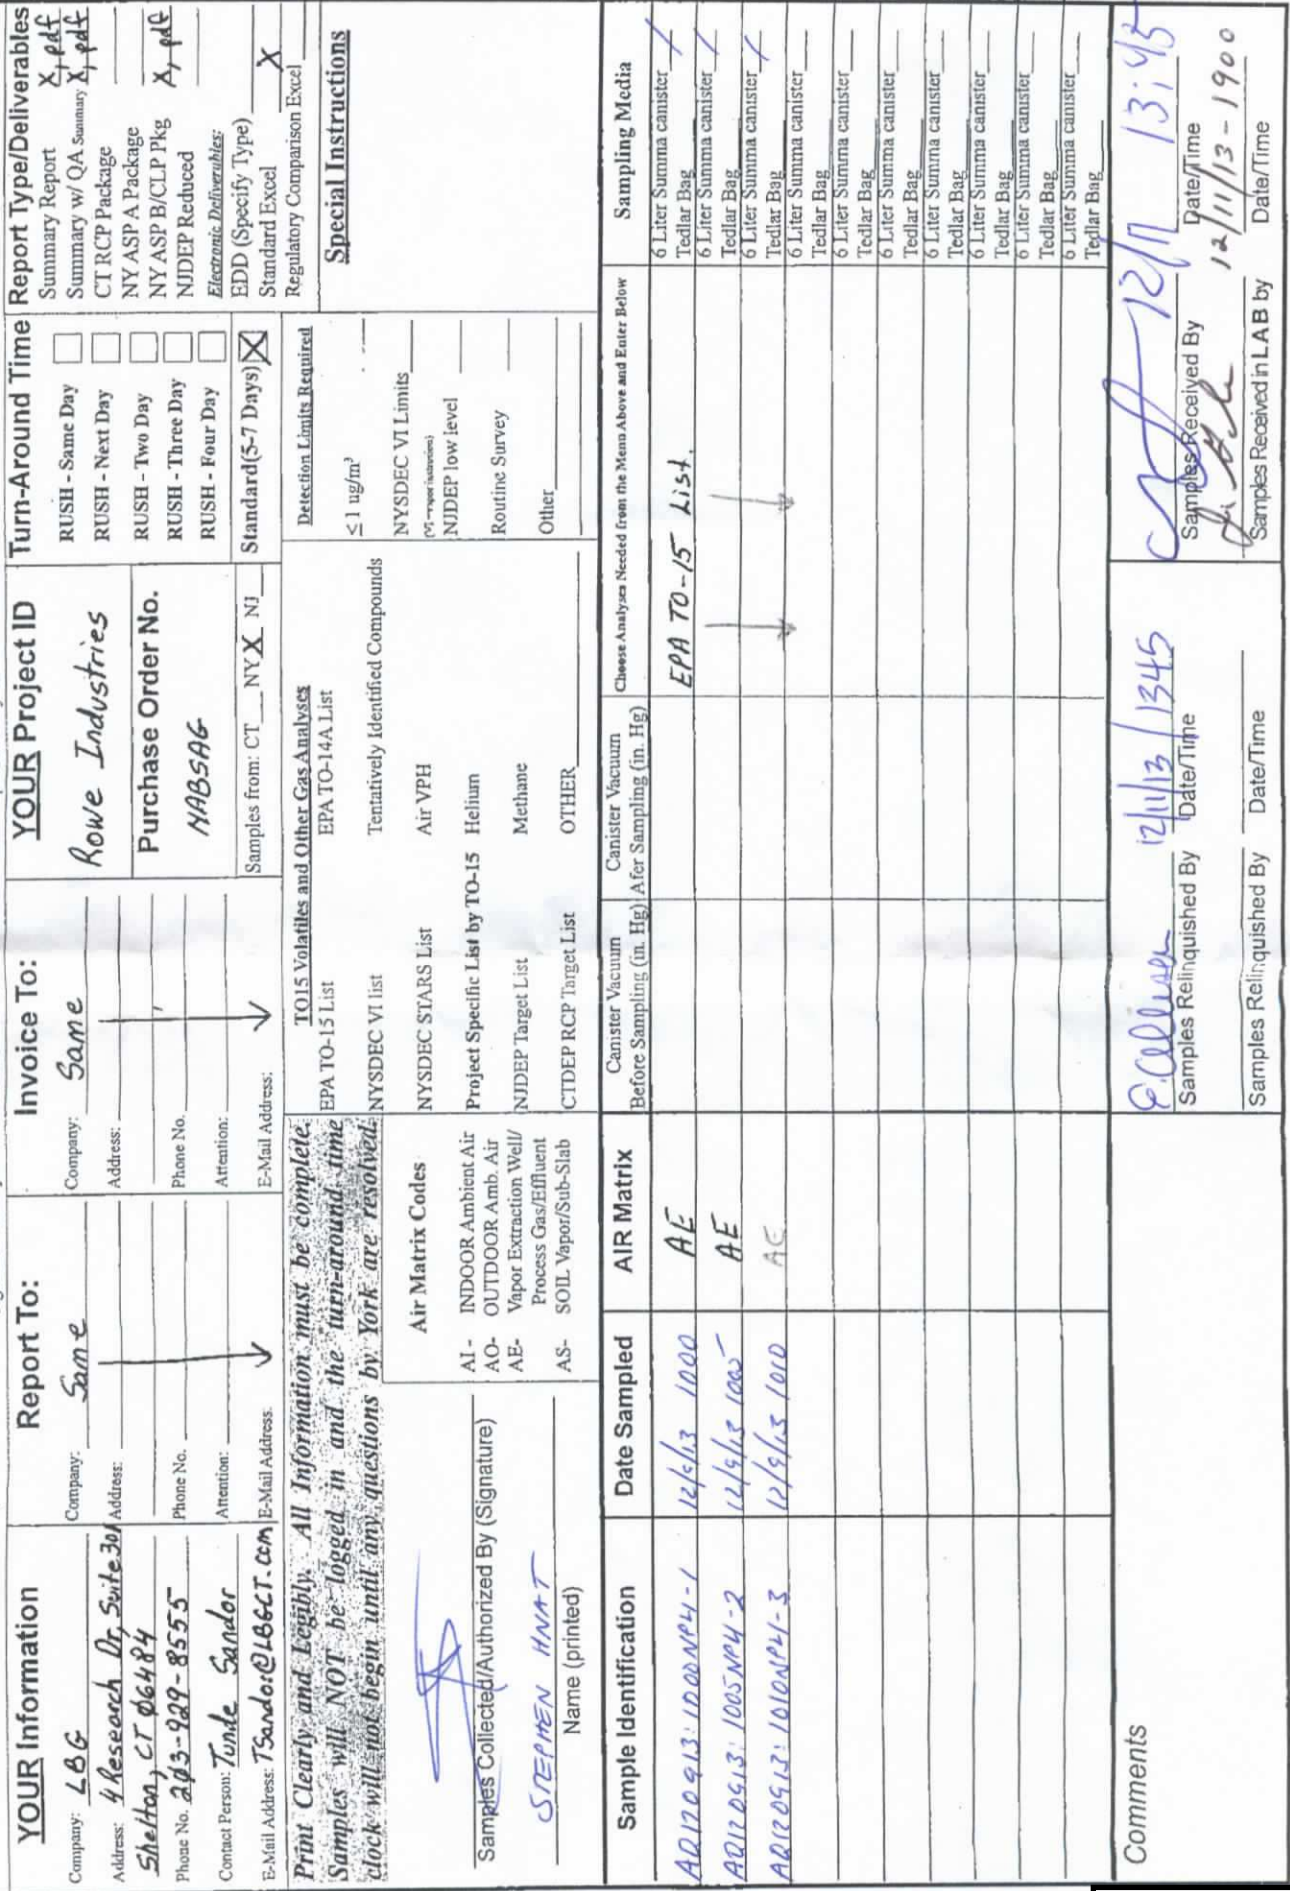 YOUR Information
Company: LBG
Address: 4 Research Dr, Suite 301
Shelton, CT 06484
Phone No. 203-929-8555
Contact Person: Tunde Sandor
E-Mail Address: TSandor@LBGCT.com
Report To:
Company: Same
Address:
Phone No.
Attention:
E-Mail Address:
Invoice To:
Company: Same
Address:
Phone No.
Attention:
E-Mail Address:
YOUR Project ID
Rowe Industries
Purchase Order No.
NABSAG
Samples from: CT__ NY X NJ__
Turn-Around Time
RUSH - Same Day
RUSH - Next Day
RUSH - Two Day
RUSH - Three Day
RUSH - Four Day
Standard(5-7 Days) X
Report Type/Deliverables
Summary Report X, pdf
Summary w/ QA Summary X, pdf
CT RCP Package
NY ASP A Package
NY ASP B/CLP Pkg X, pdf
NJDEP Reduced
Electronic Deliverables:
EDD (Specify Type)
Standard Excel X
Regulatory Comparison Excel
Print Clearly and Legibly. All Information must be complete.
Samples will NOT be logged in and the turn-around time
clock will not begin until any questions by York are resolved.
Samples Collected/Authorized By (Signature)
STEPHEN HNAT
Name (printed)
Air Matrix Codes
AI - INDOOR Ambient Air
AO- OUTDOOR Amb. Air
AE- Vapor Extraction Well/
Process Gas/Effluent
AS- SOIL Vapor/Sub-Slab
TO15 Volatiles and Other Gas Analyses
EPA TO-15 List EPA TO-14A List
NYSDEC VI list Tentatively Identified Compounds
NYSDEC STARS List Air VPH
Project Specific List by TO-15 Helium
NJDEP Target List Methane
CTDEP RCP Target List OTHER
Detection Limits Required
≤ 1 ug/m³
NYSDEC VI Limits
(VI-vapor intrusion)
NJDEP low level
Routine Survey
Other
Special Instructions
Sample Identification Date Sampled AIR Matrix
Canister Vacuum Before Sampling (in. Hg)
Canister Vacuum Afer Sampling (in. Hg)
Choose Analyses Needed from the Menu Above and Enter Below
Sampling Media
AQ120913:1000NP4-1 12/9/13 1000 AE EPA TO-15 List. 6 Liter Summa canister /
Tedlar Bag
AQ120913:1005NP4-2 12/9/13 1005 AE 6 Liter Summa canister /
Tedlar Bag
AQ120913:1010NP4-3 12/9/13 1010 AE 6 Liter Summa canister /
Tedlar Bag
6 Liter Summa canister
Tedlar Bag
6 Liter Summa canister
Tedlar Bag
6 Liter Summa canister
Tedlar Bag
6 Liter Summa canister
Tedlar Bag
6 Liter Summa canister
Tedlar Bag
6 Liter Summa canister
Tedlar Bag
6 Liter Summa canister
Tedlar Bag
Comments
12/11/13 / 1345
Samples Relinquished By Date/Time
12/11 13:45
Samples Received By Date/Time
Samples Relinquished By Date/Time
12/11/13 - 1900
Samples Received in LAB by Date/Time